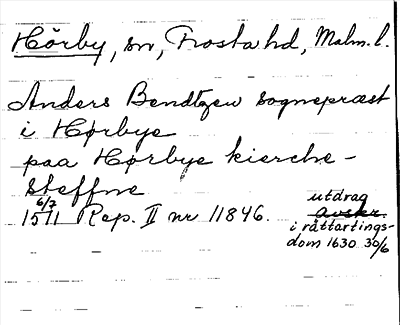 Hörby, sn, Frosta hd, Malm. l.
Anders Bendtzen sognepræst
i Hørbye
paa Hørbye kierche-
steffne
6/7 1571 Rep. II nr 11846.
utdrag
avskr.
i rättartings-
dom 1630 30/6